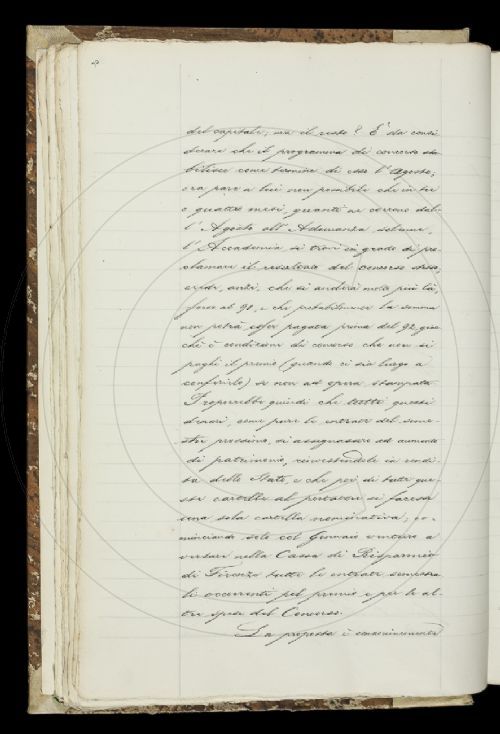 del capitale; ma il resto? È da consi
derare che il programma di concorso sta
bilisce come termine di esso l'Agosto;
ora pare a lui non possibile che in tre
o quattro mesi, quanti ne corrono dal-
l'Agosto all'Adunanza solenne,
l'Accademia si trovi in grado di pro
clamare il resultato del concorso stesso,
crede, anzi, che si andrà molto più là,
forse al 90, e che probabilmente la somma
non potrà esser pagata prima del 92 giac
chè è condizione del concorso che non si
paghi il premio (quando ci sia luogo a
conferirlo) se non ad opera stampata.
Proporrebbe quindi che tutti questi
denari, come pure le entrate del seme-
stre prossimo, si assegnassero ad aumento
di patrimonio, rinvestendole in rendi-
ta dello Stato, e che poi di tutte que-
ste cartelle al portatore si facesse
una sola cartella nominativa; co-
minciando solo col Gennaio venturo a
versare nella Cassa di Risparmio
di Firenze tutte le entrate semestra
li occorrenti pel premio e per le al-
tre spese del Concorso.
La proposta è